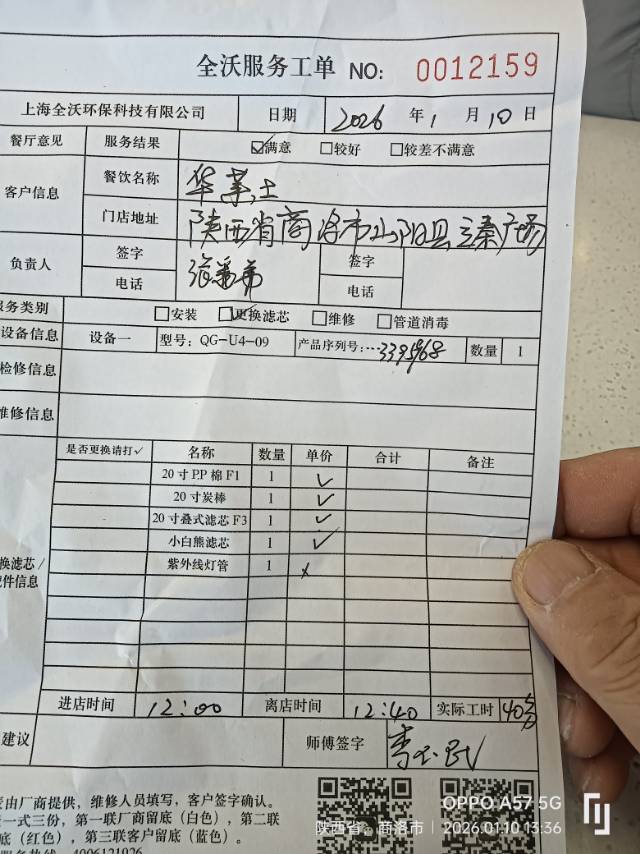 全沃服务工单 NO: 0012159
上海全沃环保科技有限公司 日期 2026 年 1 月 10 日
餐厅意见 服务结果 ☑满意 □较好 □较差不满意
客户信息 餐饮名称 华莱士
门店地址 陕西省商洛市山阳县 秦广场
负责人 签字 签字
电话 电话
服务类别 □安装 ☑更换滤芯 □维修 □管道消毒
设备信息 设备一 型号: QG-U4-09 产品序列号:…3395968 数量 1
检修信息
维修信息
是否更换请打✓ 名称 数量 单价 合计 备注
20寸P.P棉F1 1 ✓
20寸炭棒 1 ✓
20寸叠式滤芯F3 1 ✓
小白熊滤芯 1 ✓
紫外线灯管 1 ×
换滤芯/
件信息
进店时间 12:00 离店时间 12:40 实际工时 40分
建议 师傅签字
由厂商提供，维修人员填写，客户签字确认。
一式三份，第一联厂商留底（白色），第二联
底（红色），第三联客户留底（蓝色）。
4006121026
OPPO A57 5G
陕西省，商洛市 | 2026/01/10 13:36